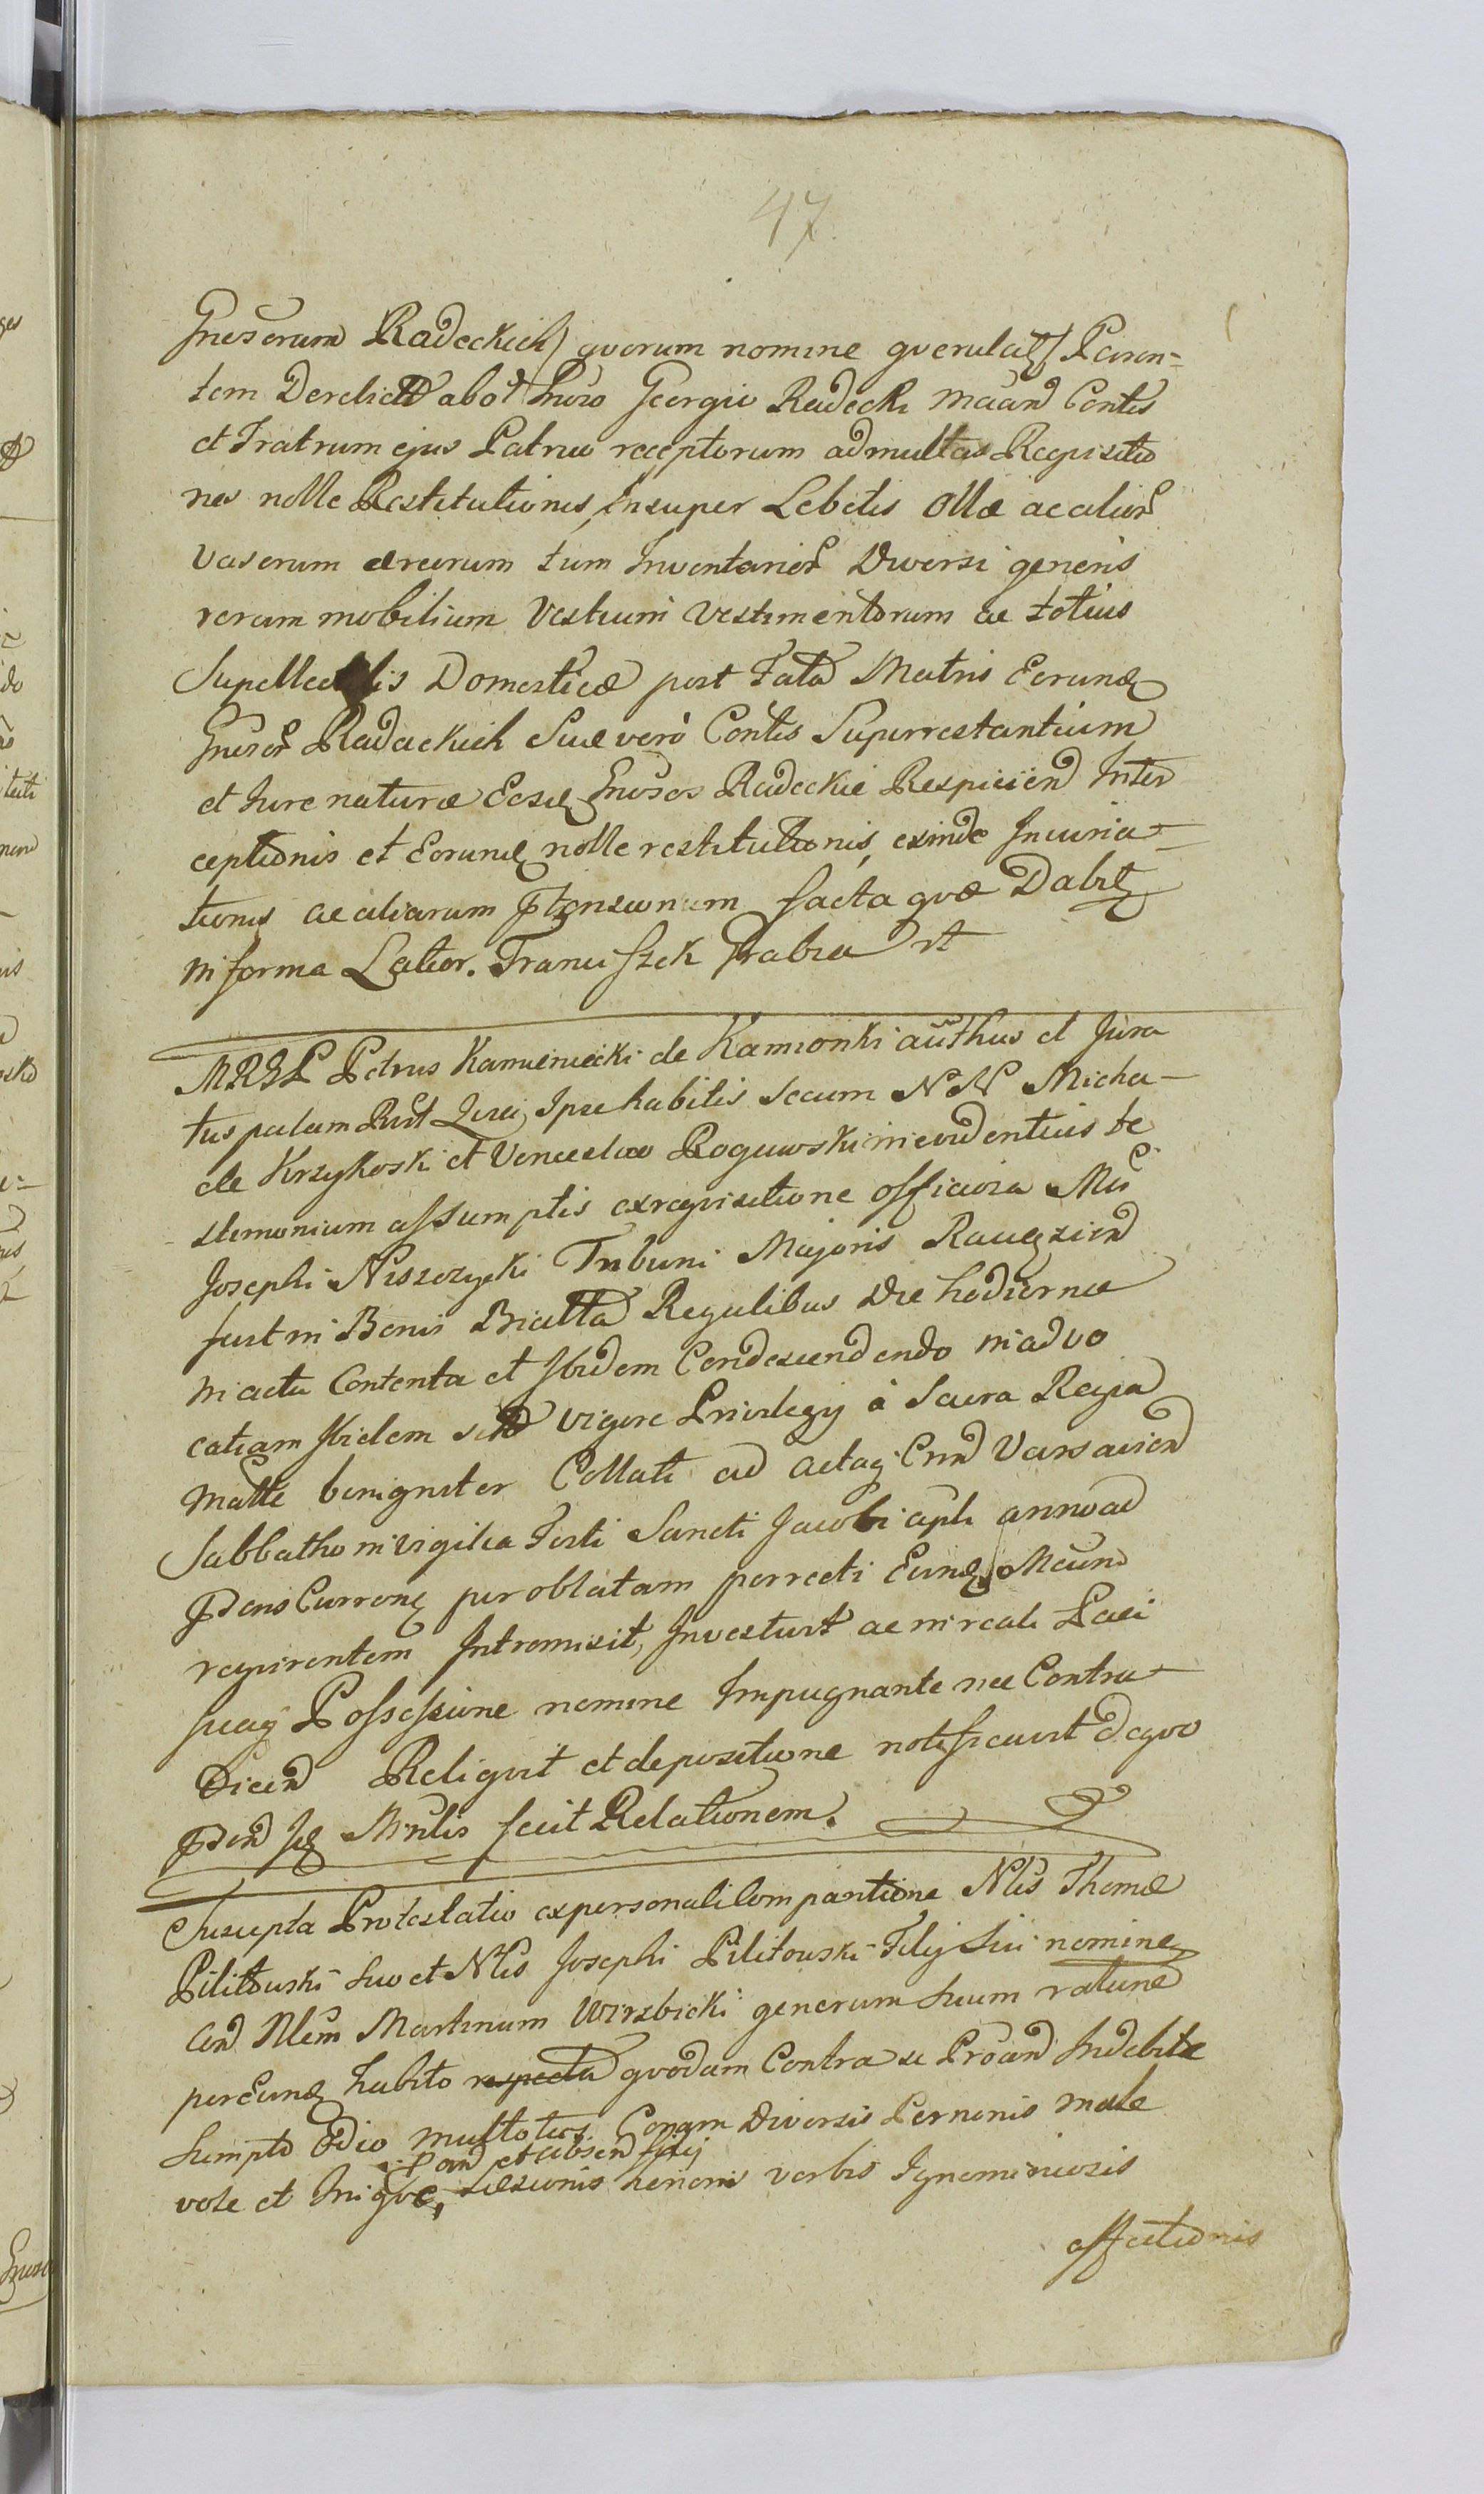 47
Gnesorum Radeckich / quorum nomine querulat / Paren=
tem Derelict ab ol Gnoso Georgio Radecki maand Contis
et Fratrum ejus Patruo receptorum ad multas Requisitio
nes nolle Restitutionis, Insuper Lebetis Ollæ ac alior
Vasorum ereorum tum Inventarior Diversi generis
rerum mobilium Vestium Vestimentorum ac totius
Supellectilis Domesticæ post Fata Matris Eorund
Gnesor Radackich Suæ verò Contis Superrestantium
et Jure naturæ Eosd Gnosos Radeckie Respiciend Inter
ceptionis et Eorund nolle restitutionis, exinde Injuria=
tionis ac aliarum ptensionum facta quæ Dabit
in forma Latior. Franciszek Grabia
MRGL Petrus Kamieniecki de Kamionki authus et Jura
tus palam Rndt Quia Ipse habitis secum NN Micha=
ele Krzykoski et Venceslao Roguwski in evidentius te
stimonium assumptis ex requisitione officiosa Mci
Josephi Niszczycki Tribuni Majoris Rauczien
fuit in Bonis Biatta Regalibus Die hodierna
in actu Contenta et Ibidem Condescendendo in advo
catiam Ibidem sit vigore Privilegij à Sacra Regia
Matte benigniter Collati ad actaq Crn Varsavien
Sabbatho in vigilia Festi Sancti Jacobi apli anno ad
pdens Curren per oblatam porrecti Eund Mcum
requirentem Intromisit, Investivit ac in reali Paci
ficaq Possessione nemine Impugnante nec Contra=
Dicen Reliquit et depositione notificavit de quo
pdend Id Mnlis fecit Relationem.
Suscepta Protestatio ex personali Comparitione Nlis Thomæ
Pilitowski suo et Nlis Josephi Pilitowski Filij Sui nomine
Con Nlem Martinum Wirzbicki generum Suum ratione
per Eund habito respectu quodam Contra se Proand Indebite
Sumpto Odio multoties Coram Diversis Personis male
Pand et absend filij
vole et Inique, Læsionis honoris verbis Ignominiosis
affectionis